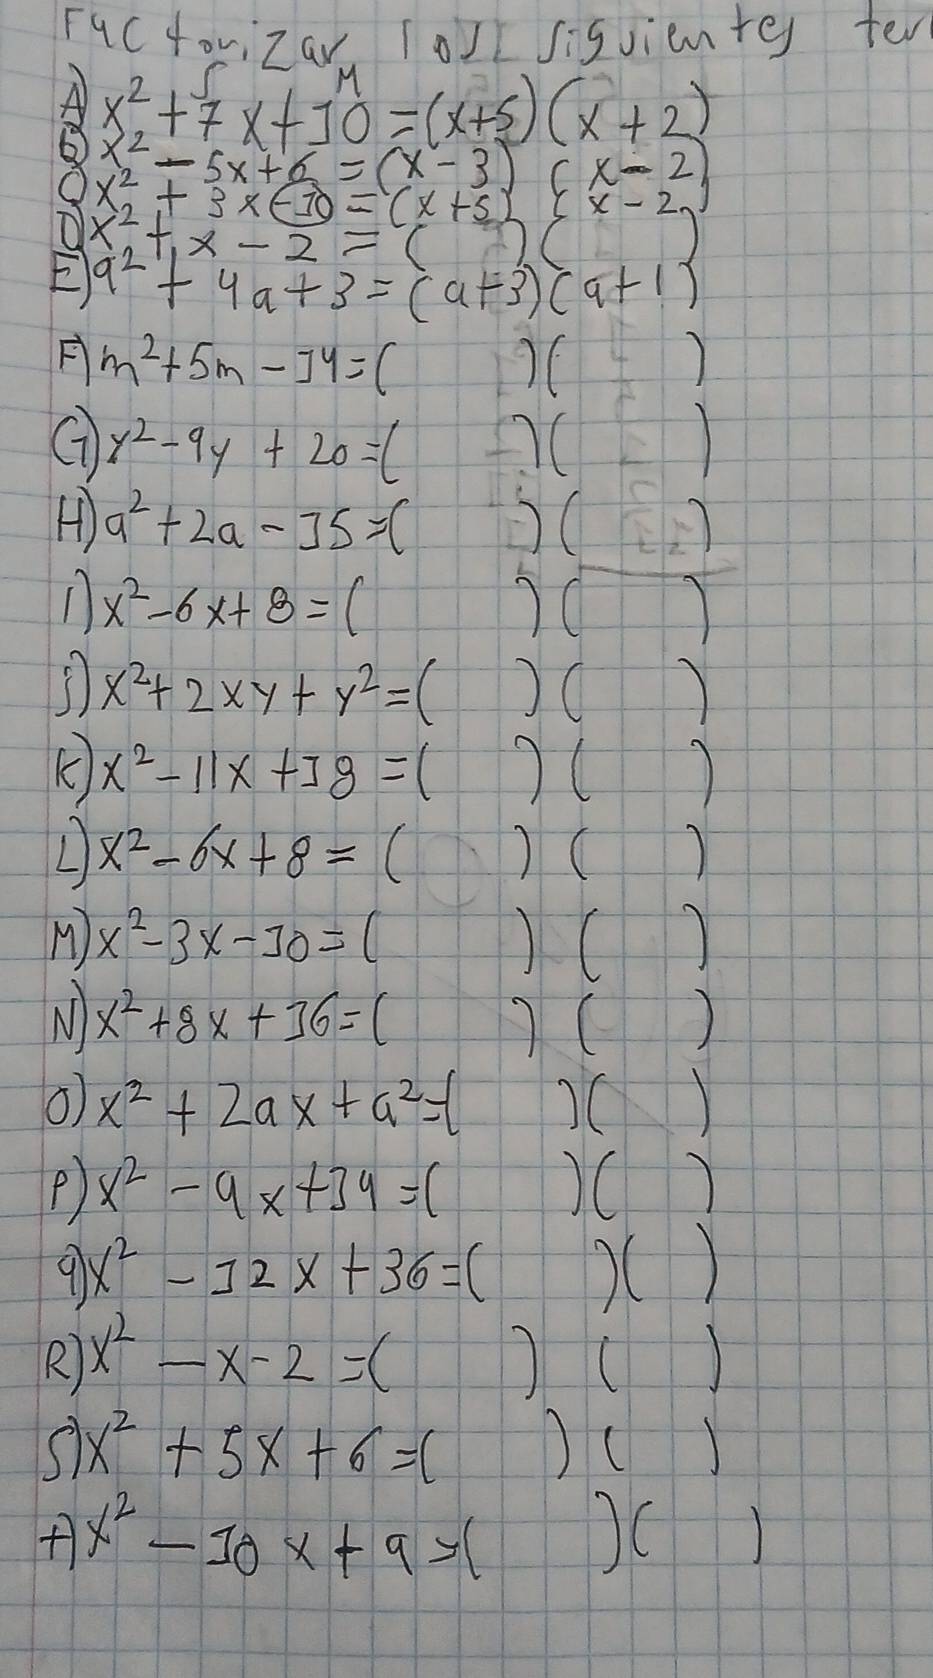 Factorizar los siguientes
S M
A) x² + 7x + 10 = (x+5) (x + 2)
B) x² - 5x + 6 = (x - 3) (x - 2)
C) x² + 3x - 10 = (x + 5) (x - 2)
D) x² + x - 2 = ( ) ( )
E) a² + 4a + 3 = (a+3) (a + 1)
F) m² + 5m - 14 = ( ) ( )
G) y² - 9y + 20 = ( ) ( )
H) a² + 2a - 15 = ( ) ( )
I) x² - 6x + 8 = ( ) ( )
J) x² + 2xy + y² = ( ) ( )
K) x² - 11x + 18 = ( ) ( )
L) x² - 6x + 8 = ( ) ( )
M) x² - 3x - 10 = ( ) ( )
N) x² + 8x + 16 = ( ) ( )
O) x² + 2ax + a² = ( ) ( )
P) x² - 9x + 14 = ( ) ( )
q) x² - 12x + 36 = ( ) ( )
R) x² - x - 2 = ( ) ( )
S) x² + 5x + 6 = ( ) ( )
t) x² - 10x + 9 = ( ) ( )